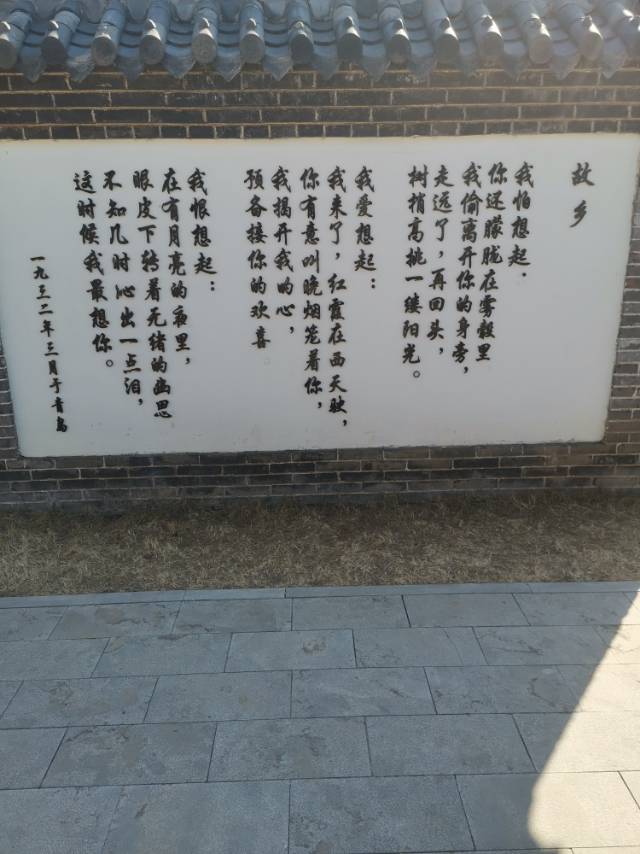 故乡
我怕想起：
你还朦胧在雾縠里
我偷离开你的身旁，
走远了，再回头，
树梢高挑一缕阳光。
我爱想起：
我来了，红霞在西天驶，
你有意叫晚烟笼着你，
我揭开我的心，
预备接你的欢喜
我恨想起：
在有月亮的夜里，
眼皮下转着无绪的幽思
不知几时沁出一点泪，
这时候我最想你。
一九三二年三月于青岛